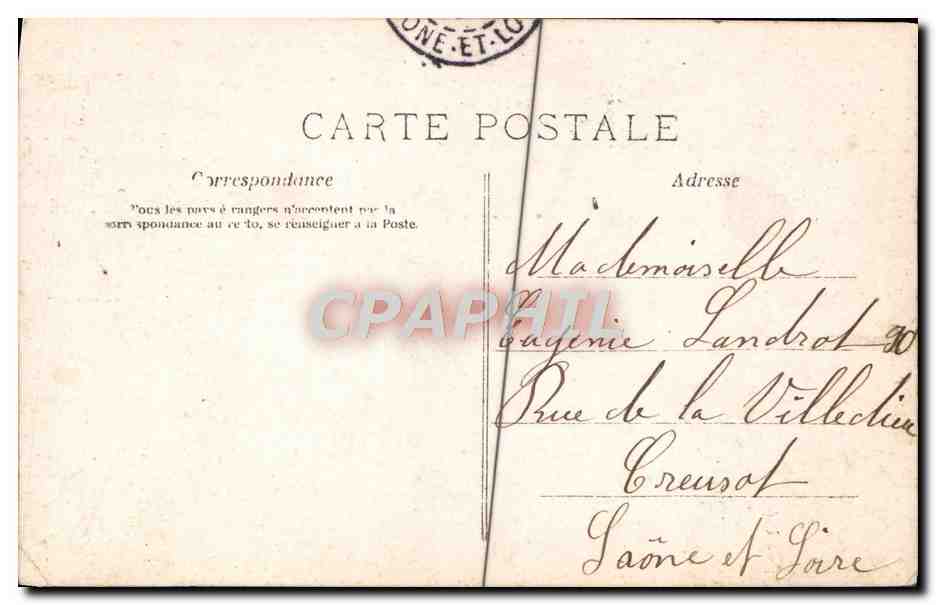 ONE-ET-LO
CARTE POSTALE
Correspondance
Tous les pays é rangers n'acceptent pas la
correspondance au recto, se renseigner à la Poste.
Adresse
Mademoiselle
Eugénie Landrot 90
Rue de la Villedieu
Creusot
Saône et Loire
CPAPHIL